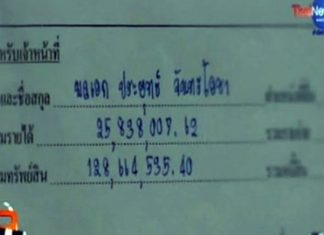 ThaiNews
หรับเจ้าหน้าที่
และชื่อสกุล พลเอก ประยุทธ์ จันทร์โอชา
มรายได้ 25,838,007.62
มทรัพย์สิน 128,664,535.40